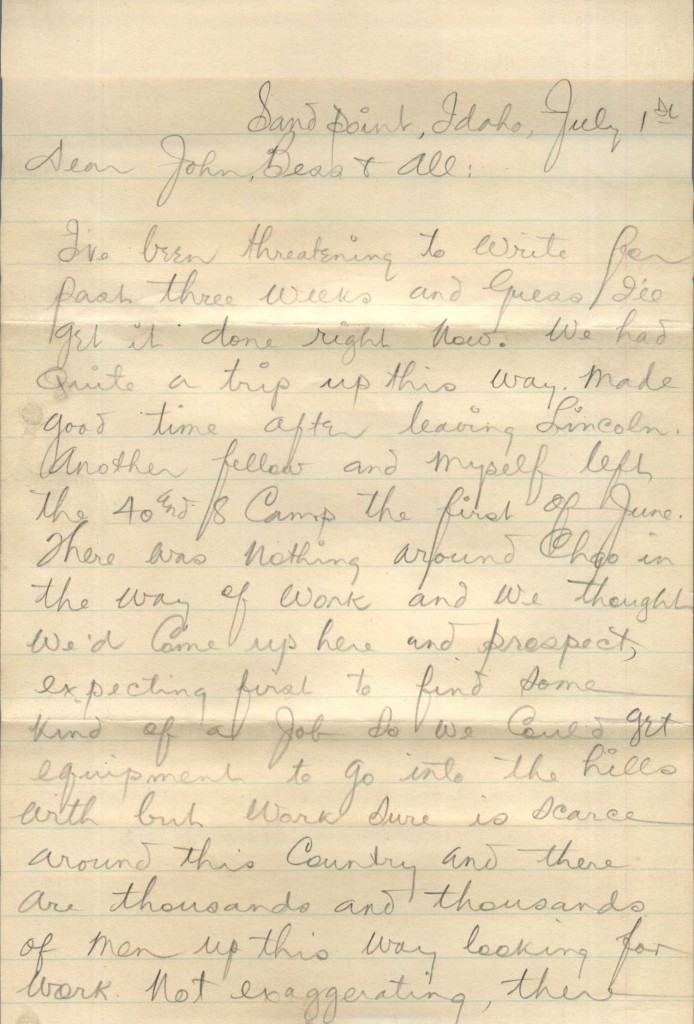 Sand point, Idaho, July 1st
Dear John, Bess & All:
I've been threatening to write for
past three weeks and Guess I'll
get it done right now. We had
Quite a trip up this way. Made
good time after leaving Lincoln.
Another fellow and myself left
the 40 and 8 Camp the first of June.
There was nothing around Chgo in
the way of work and we thought
we'd Come up here and prospect,
expecting first to find some
kind of a Job so we Could get
equipment to go into the hills
with but work sure is scarce
around this Country and there
are thousands and thousands
of men up this way looking for
work. Not exaggerating, there